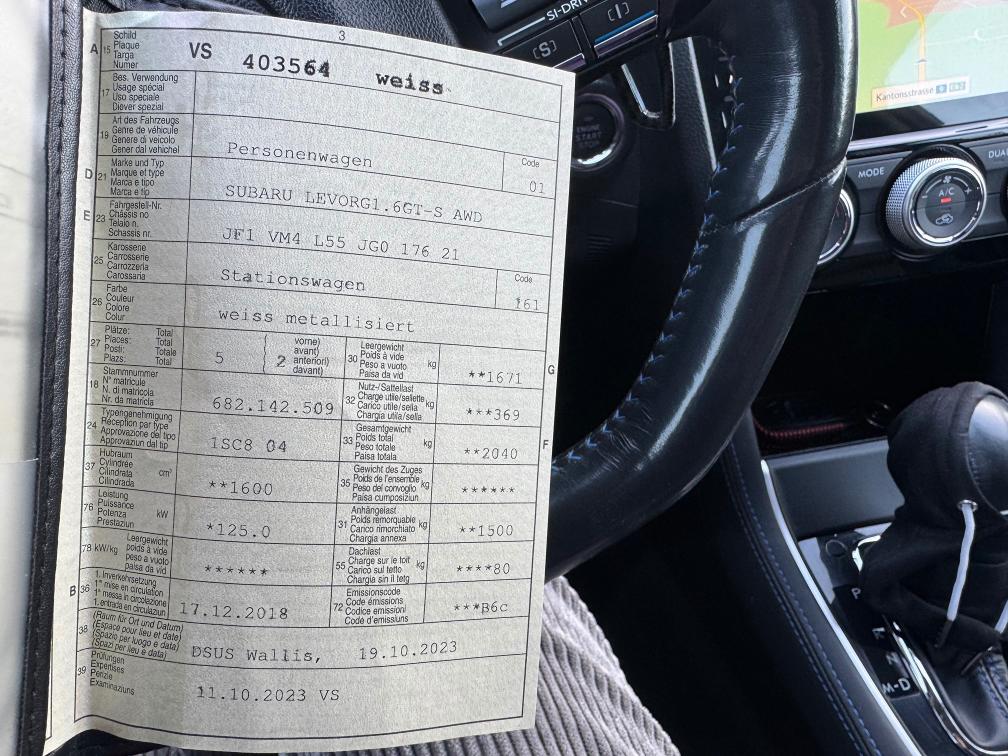 3
A 15 Schild
Plaque
Targa
Numer
VS 403564 weiss
17 Bes. Verwendung
Usage spécial
Uso speciale
Diever spezial
19 Art des Fahrzeugs
Genre de véhicule
Genere di veicolo
Gener dal vehichel
Personenwagen
Code
01
D 21 Marke und Typ
Marque et type
Marca e tipo
Marca e tip
SUBARU LEVORG1.6GT-S AWD
E 23 Fahrgestell-Nr.
Châssis no
Telaio n.
Schassis nr.
JF1 VM4 L55 JG0 176 21
25 Karosserie
Carrosserie
Carrozzeria
Carossaria
Stationswagen
Code
161
26 Farbe
Couleur
Colore
Colur
weiss metallisiert
27 Plätze: Total
Places: Total
Posti: Totale
Plazs: Total
5
2
vorne)
avant)
anteriori)
davant)
30 Leergewicht
Poids à vide
Peso a vuoto
Paisa da vid
kg
**1671
G
18 Stammnummer
N° matricule
N. di matricola
Nr. da matricla
682.142.509
32 Nutz-/Sattellast
Charge utile/sellette
Carico utile/sella
Chargia utila/sella
kg
***369
24 Typengenehmigung
Réception par type
Approvazione del tipo
Approvaziun dal tip
1SC8 04
33 Gesamtgewicht
Poids total
Peso totale
Paisa totala
kg
**2040
F
37 Hubraum
Cylindrée
Cilindrata
Cilindrada
cm³
**1600
35 Gewicht des Zuges
Poids de l'ensemble
Peso del convoglio
Paisa cumposiziun
kg
******
76 Leistung
Puissance
Potenza
Prestaziun
kW
*125.0
31 Anhängelast
Poids remorquable
Carico rimorchiato
Chargia annexa
kg
**1500
78 kW/kg Leergewicht
poids à vide
peso a vuoto
paisa da vid
******
55 Dachlast
Charge sur le toit
Carico sul tetto
Chargia sin il tetg
kg
****80
B 36 1. Inverkehrsetzung
1re mise en circulation
1a messa in circolazione
1. entrada en circulaziun
17.12.2018
72 Emissionscode
Code émissions
Codice emissioni
Code d'emissiuns
***B6c
38 (Raum für Ort und Datum)
(Espace pour lieu et date)
(Spazio per luogo e data)
(Spazi per lieu e data)
DSUS Wallis, 19.10.2023
39 Prüfungen
Expertises
Perizie
Examinaziuns
11.10.2023 VS
SI-DRIVE
[S]
[I]
ENGINE
START
STOP
Kantonsstrasse 9 E62
MODE
DUAL
A/C
P
N
M-D